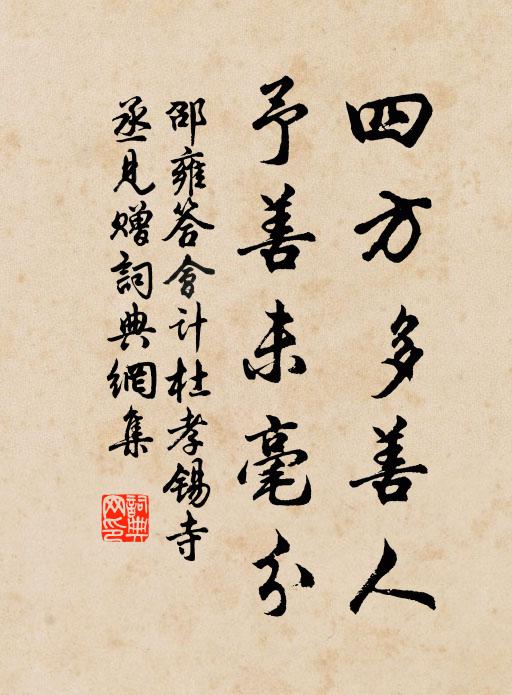 四方多善人
予善未毫分
邵雍答會計杜孝錫寺
丞見贈詞典網集
詞典網印